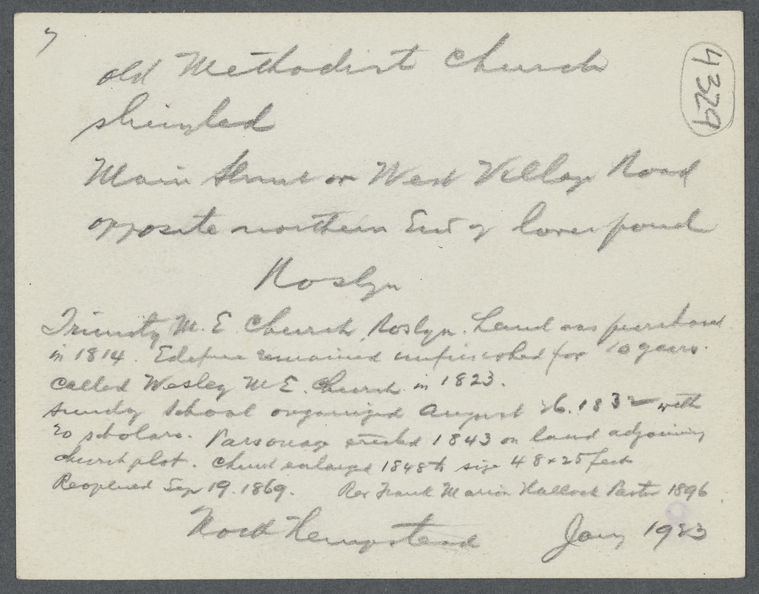 7
4329
old Methodist Church
shingled
Main Street or West Village Road
opposite northern End of lower pond
Roslyn
Trinity M. E. Church Roslyn. Land was purchased
in 1814. Edifice remained unfinished for 10 years.
Called Wesley M E. Church in 1823.
Sunday School organized August 26. 1832 with
20 scholars. Parsonage erected 1843 on land adjoining
church plot. Church enlarged 1848 to size 48 x 25 feet
Reopened Sep 19. 1869. Rev Frank Marion Hallock Pastor 1896
North Hempstead Jany 1923